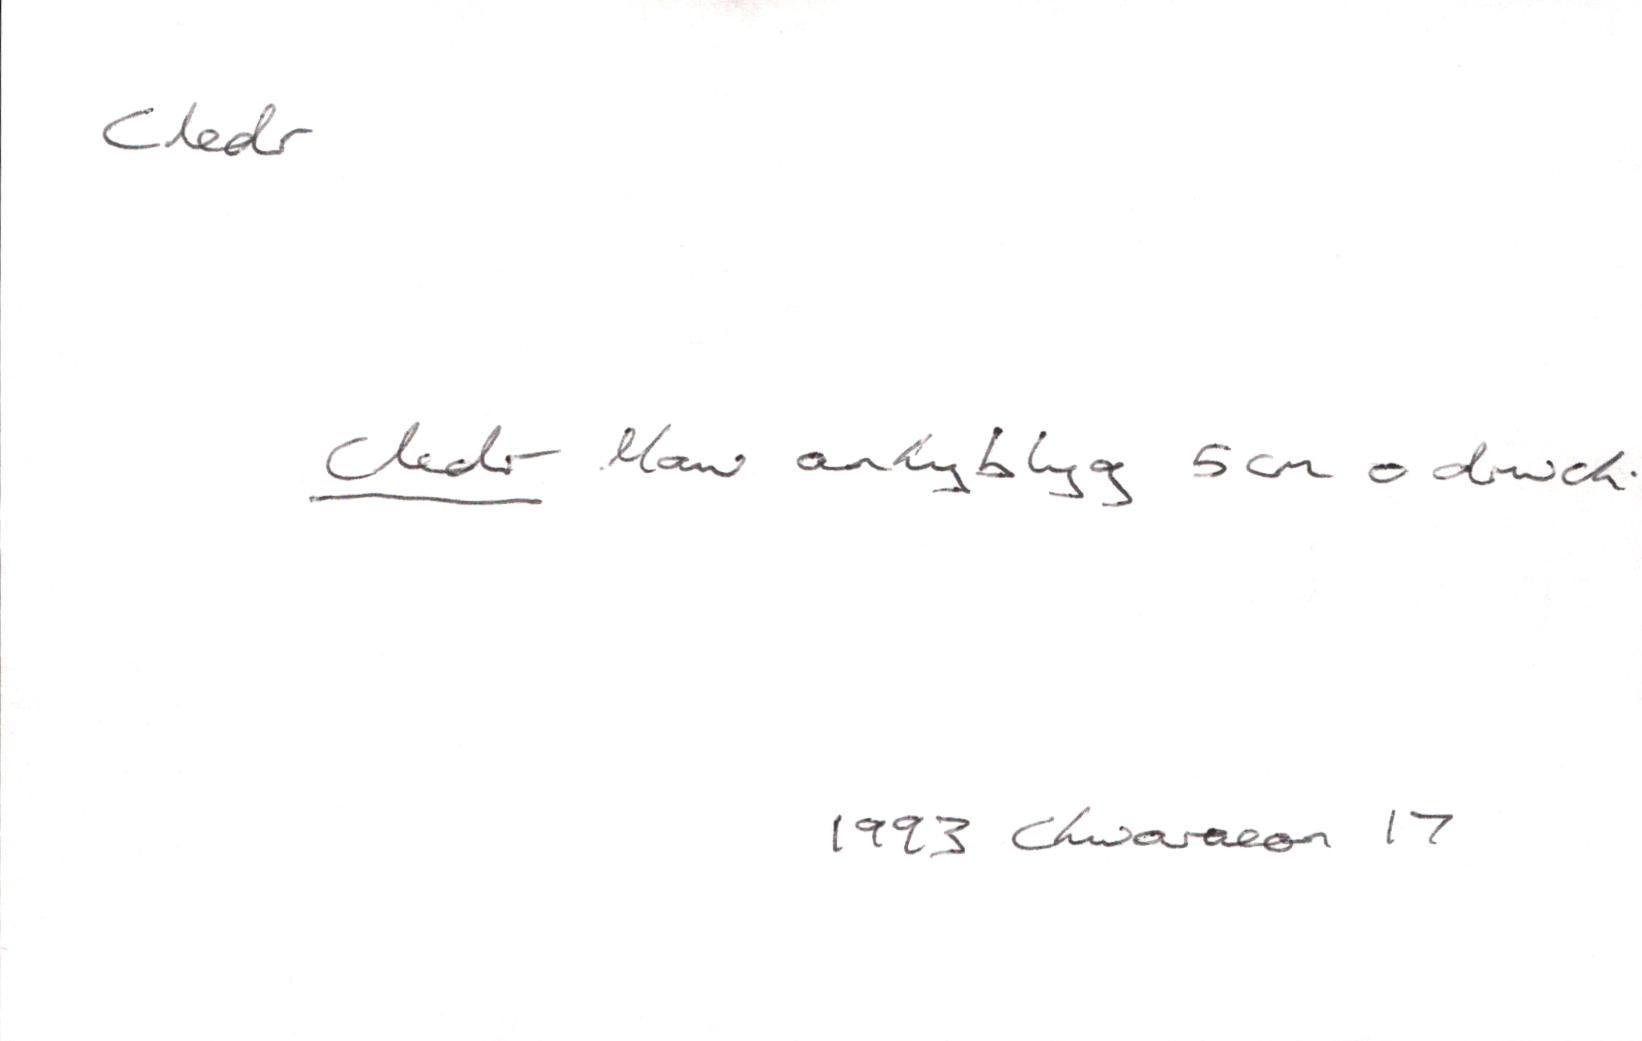 Cledr
Cledr llaw anhyblyg 5cm o drwch.
1993 Chwaraeon 17